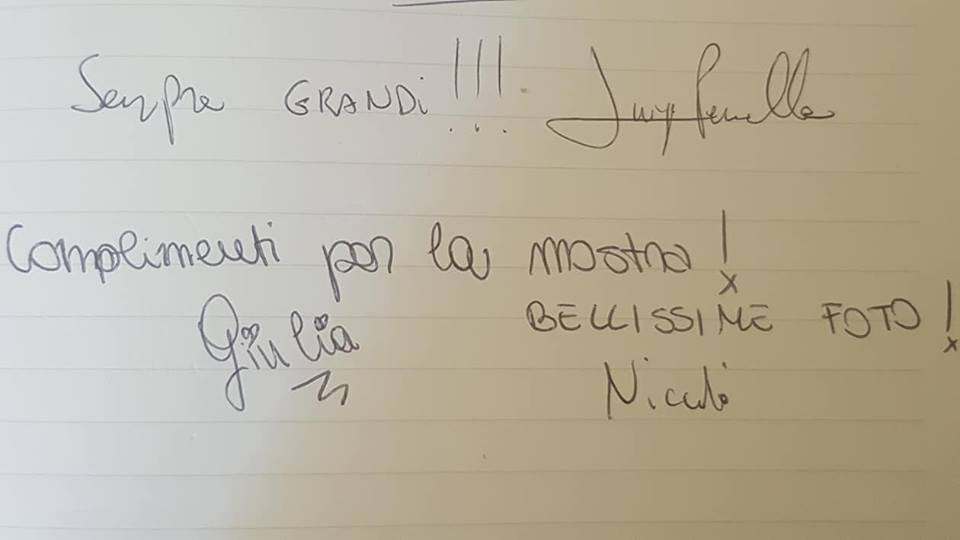 Sempre GRANDi!!!
Complimenti per la mostra!
Giulia
BELLISSIME FOTO!
Nicolò